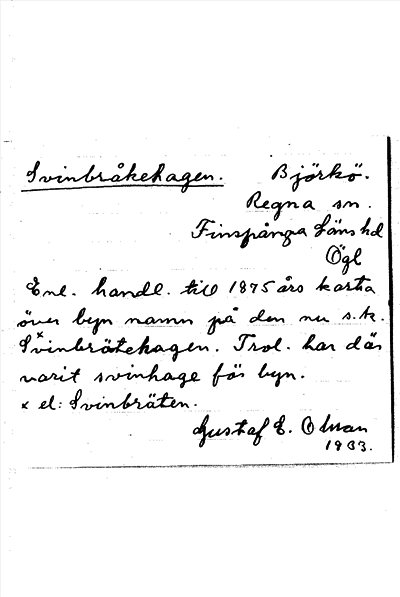 Svinbråkehagen. Björkö.
Regna sn.
Finspånga läns hd
Ögl
Enl. handl. till 1875 års karta
över byn namn på den nu s.k.
Sˣvinbrätehagen. Trol. har där
varit svinhage för byn.
x el: Svinbräten.
Gustaf E. Olman
1933.